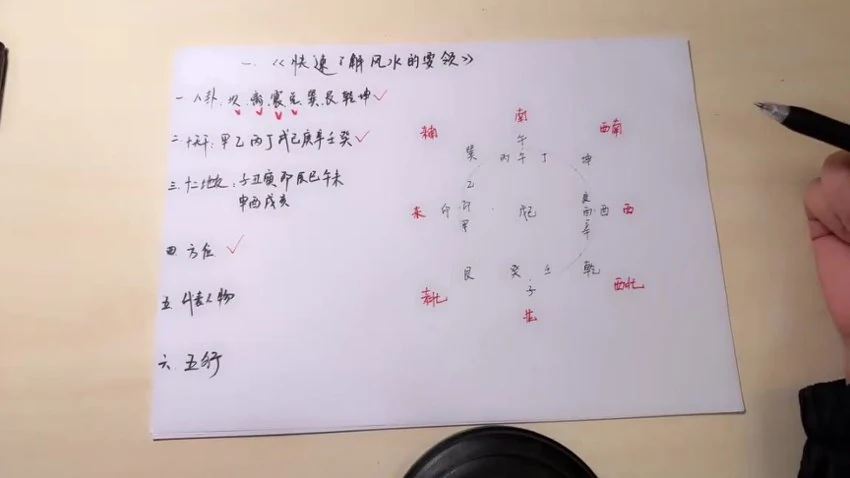 一、《快速了解风水的要领》
一 八卦、坎、离、震、兑、巽、艮、乾坤
二、十天干：甲乙丙丁戊己庚辛壬癸
三、十二地支：子丑寅卯辰巳午未
申酉戌亥
四、方位
五、代表人物
六、五行
南
东南
西南
午
巽
丙午丁
坤
乙
卯
甲
东
卯
戊己
庚
酉
辛
酉
西
艮
癸
壬
乾
子
东北
西北
北